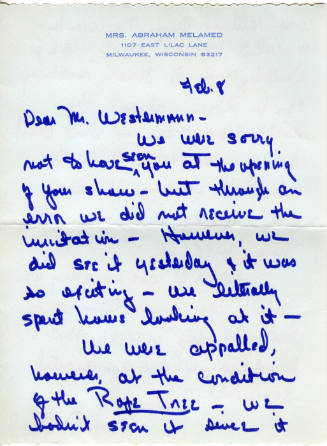 MRS. ABRAHAM MELAMED
1107 EAST LILAC LANE
MILWAUKEE, WISCONSIN 53217
Feb. 8
Dear Mr. Westermann -
We were sorry
not to have seen you at the opening
of your show - but through an
error we did not receive the
invitation - However, we
did see it yesterday & it was
so exciting - we literally
spent hours looking at it -
We were appalled,
however, at the condition
of the Rope Tree - we
hadn't seen it since it